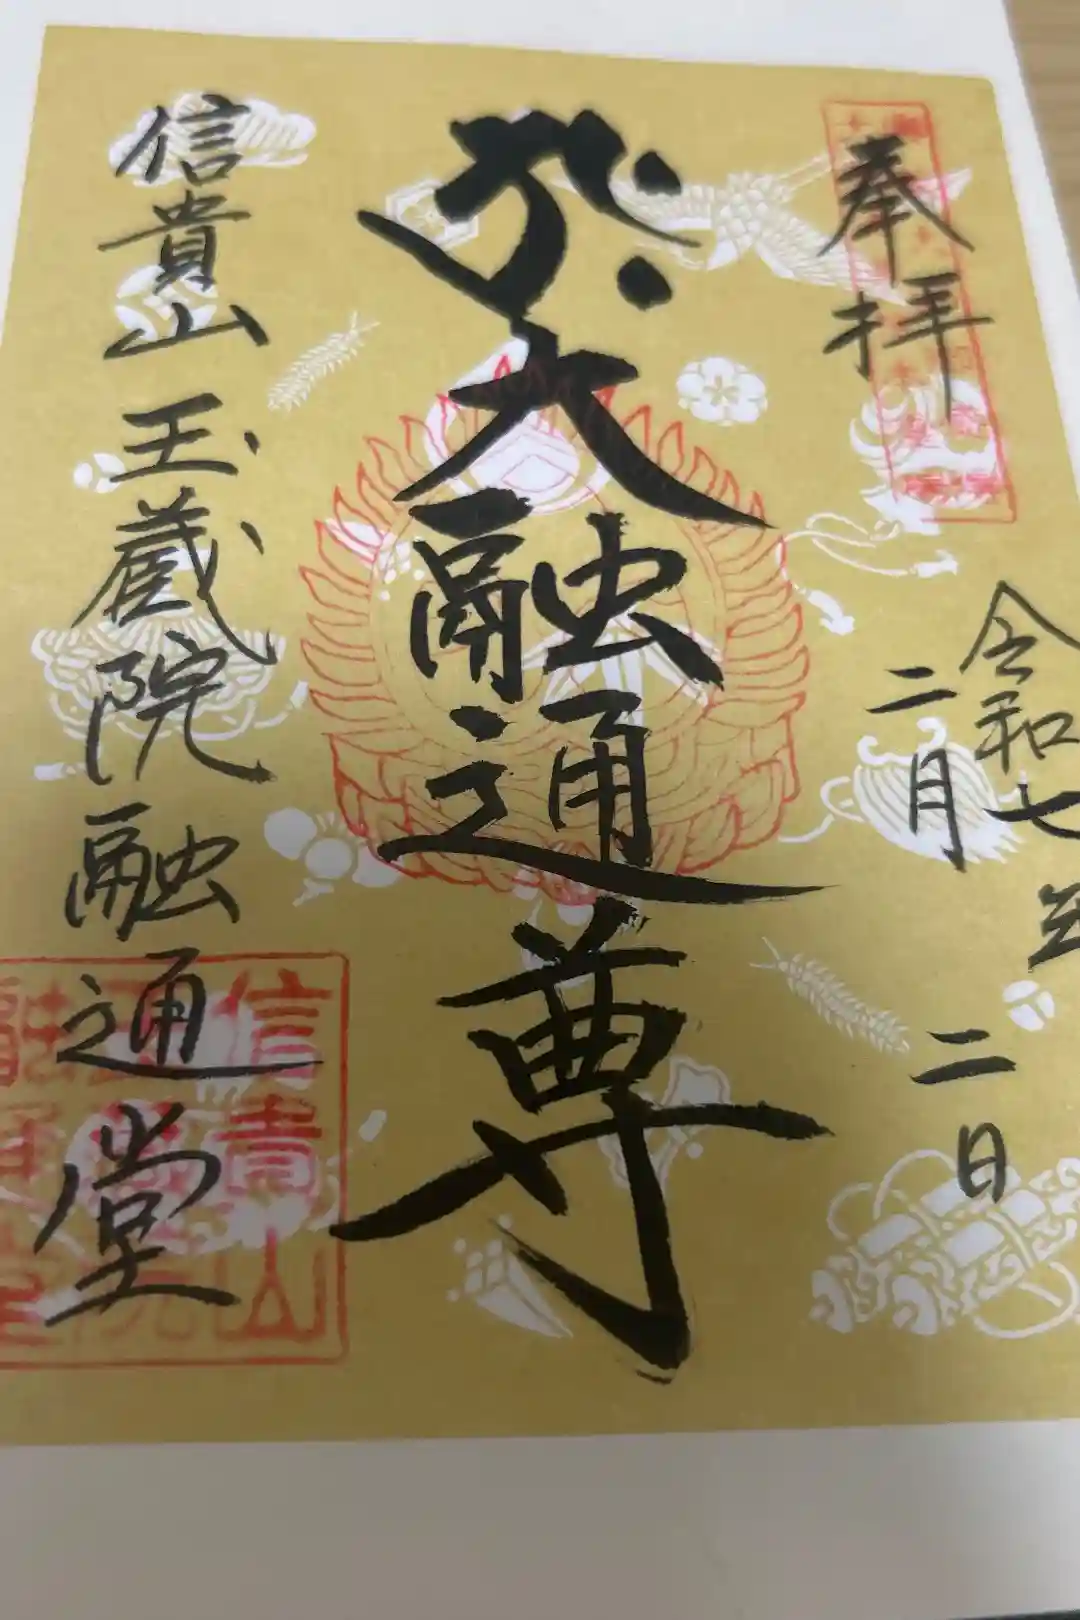 奉拝
令和七年
二月二日
大融通尊
信貴山玉蔵院融通堂
信貴山